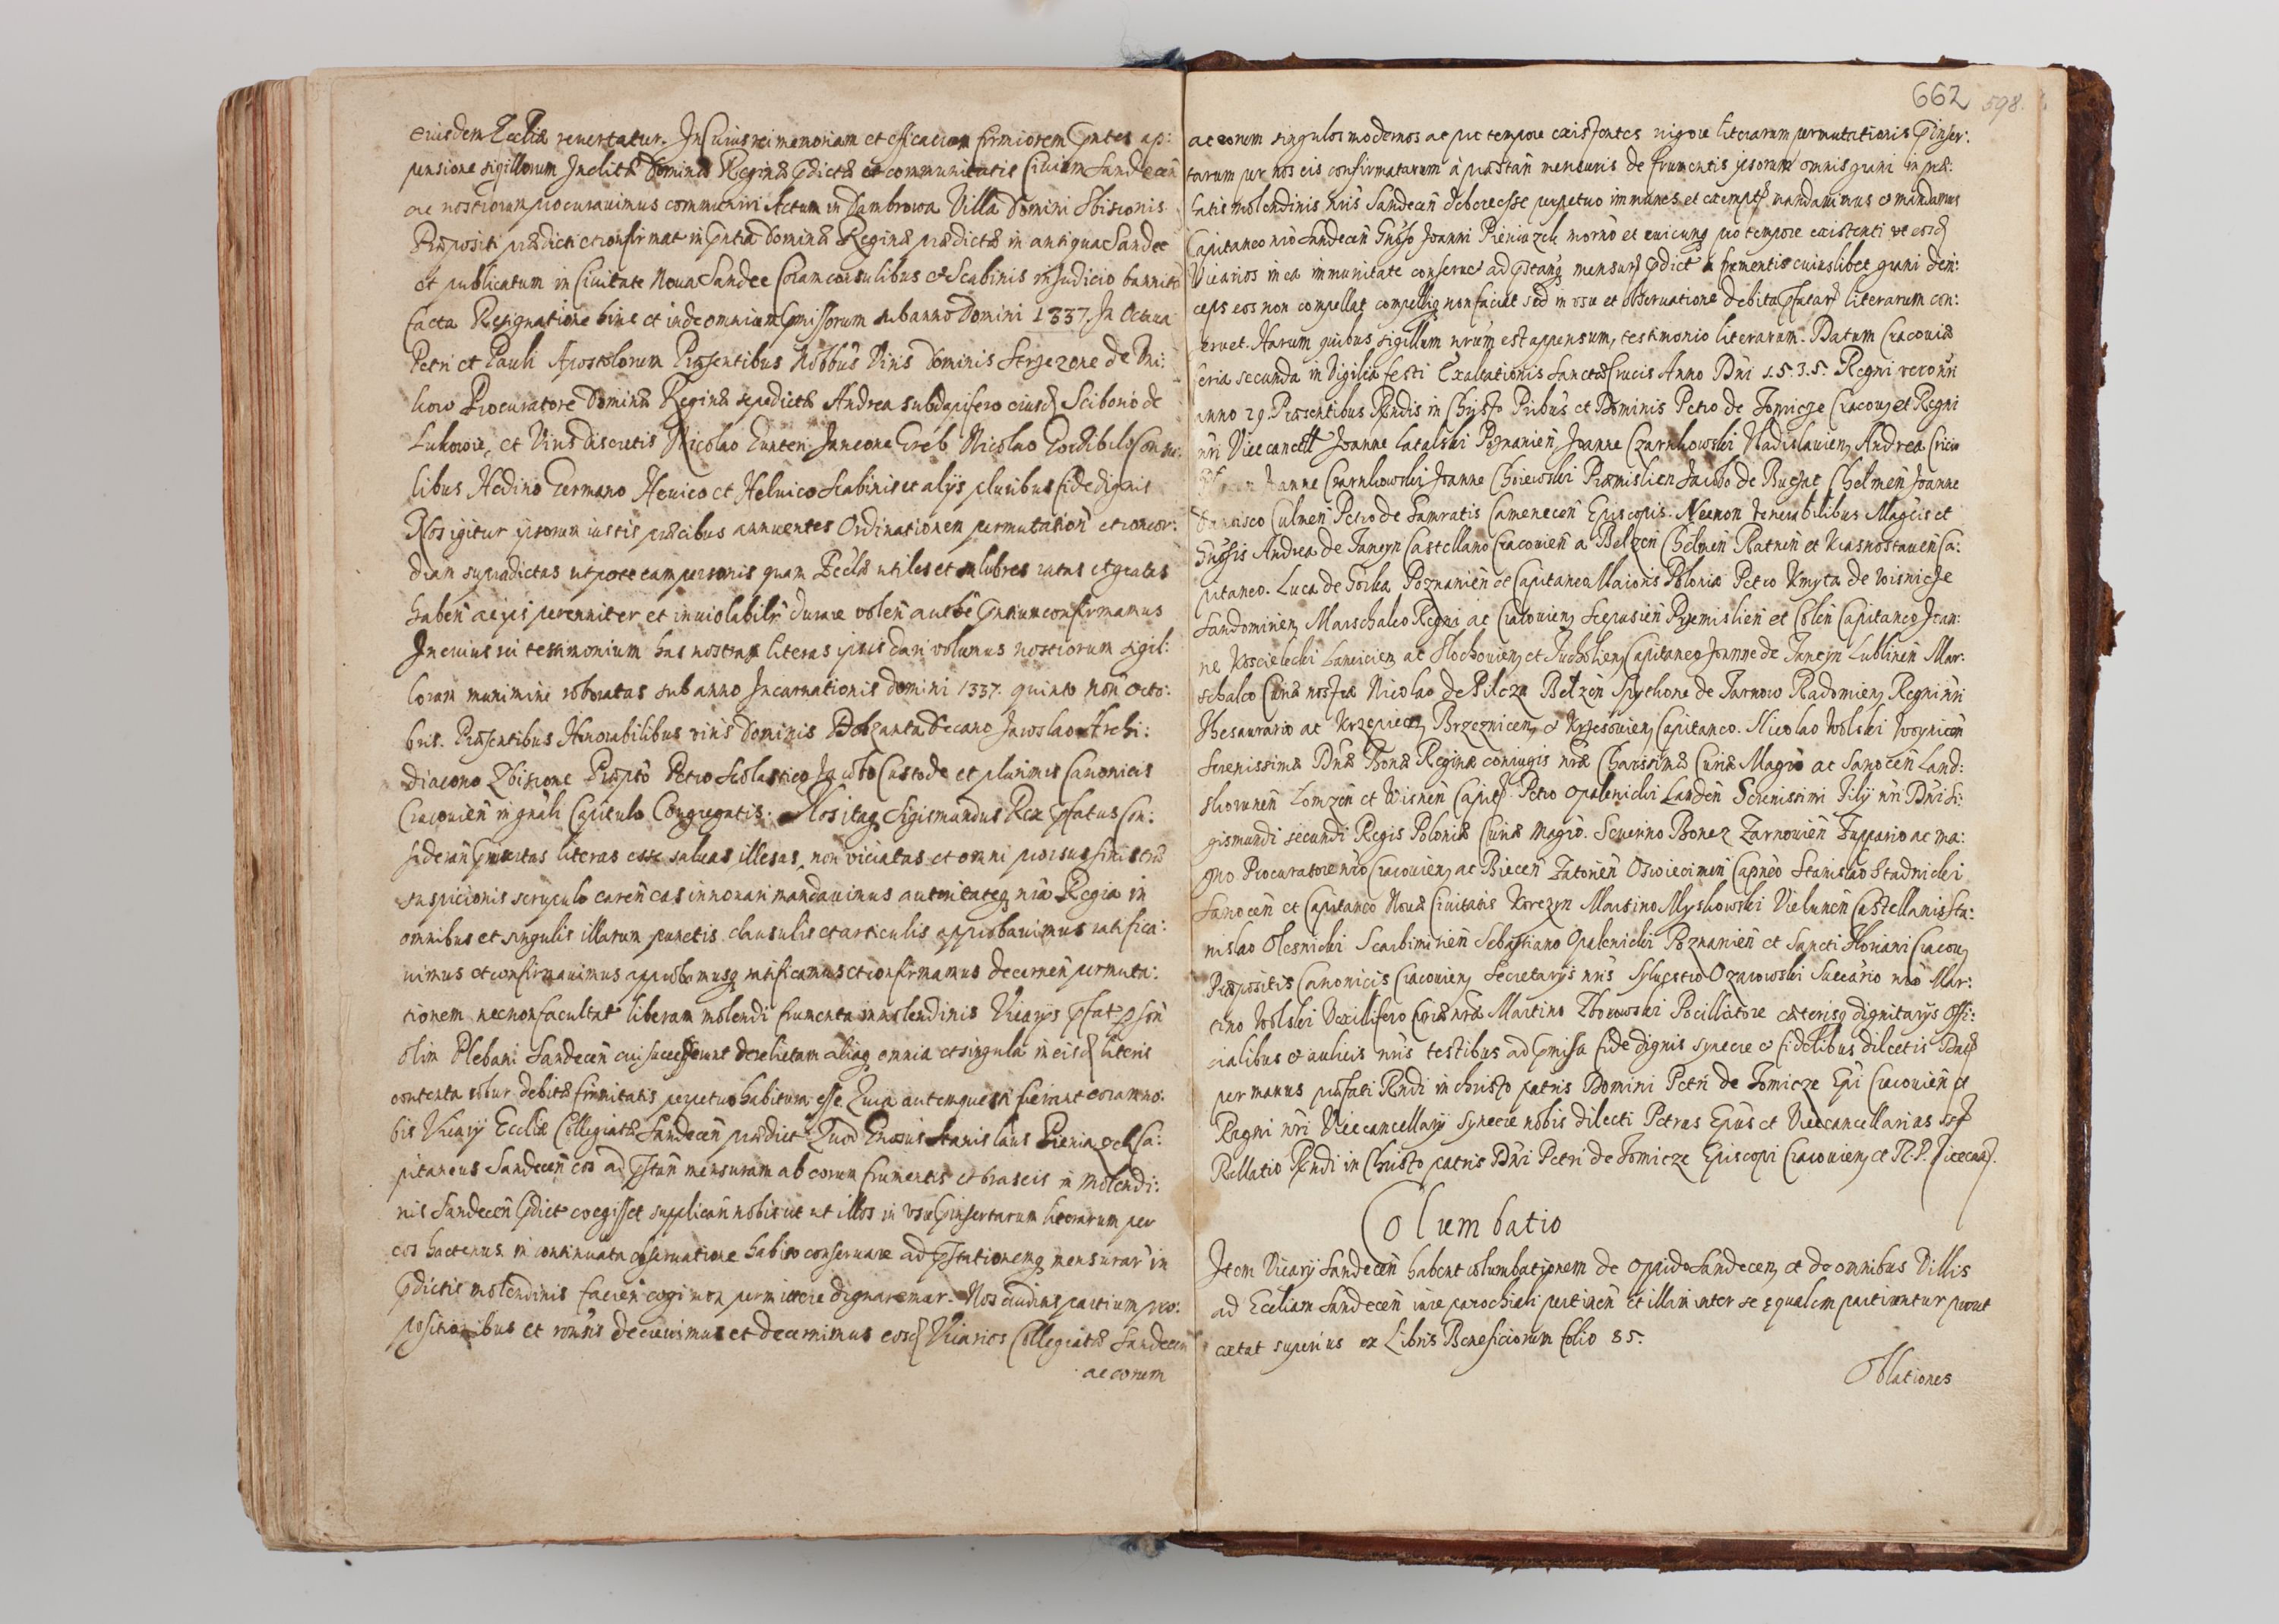 eiusdem Eccliæ revertatur. In Cuius rei memoriam et efficaciam firmiorem pntes ap:
pensione sigillorum Inclitæ Dominæ Reginæ pdictæ et communitatis Civium Sandecen
ac nostrorum procuravimus communiri Actum in Dambrowa Villa Domini Sbisionis
Præpositi prædicti et confirmat in pntia Dominæ Reginæ prædictæ in antiqua Sandec
et publicatum in Civitate Nova Sandec Coram consulibus et Scabinis in Judicio bannito
facta Resignatione hinc et inde omnium pmissorum sub anno Domini 1337. In Octava
Petri et Pauli Apostolorum Præsentibus Nobbus Viris Dominis Strzezone de Mi:
how Procuratore Dominæ Reginæ sepedictæ Andrea subdapifero eiusd Scibono de
Lukowie, et Viris discretis Nicolao Gunteri Janeone Greb Nicolao Gordibel Consu:
libus Hedino Germano Henico et Helvico Scabinis et alijs pluribus fide dignis
Nos igitur ipsorum iustis præcibus annuentes Ordinationem permutation et concor:
diam supradictas utpote tam personis quam Eccliæ utiles et salubres ratas et gratas
haben ac ipsi perenniter et inviolabilr durare volen autbe pntium confirmamus
In cuius rei testimonium has nostras literas ipsis dari volumus nostrorum sigil:
lorum munimine roboratas sub anno Incarnationis domini 1337. quinto non Octo:
bris. Præsentibus Honorabilibus viris Dominis Dobzanta Decano Jaroslao Archi:
diacono Zbisione Præpto Petro Scolastico Jacobo Custode et plurimis Canonicis
Cracovien in gnali Capitulo Congregatis. Nos itaq Sigismundus Rex pfatus Con:
sideran pinsertas literas esse salvas illesas, non viciatas et omni prorsus sinistræ
suspicionis scrupulo caren eas innovari mandavimus autoritateq nra Regia in
omnibus et singulis illarum punctis clausulis et articulis approbavimus ratifica:
vimus et confirmavimus approbamusq ratificamus et confirmamus decernen permuta:
tionem necnon facultat liberam molendi frumenta in molendinis Vicarijs pfat p son
olim Plebani Sandecen cui successerunt derelictam aliaq omnia et singula in eisd literis
contenta robur debitæ firmitatis perpetuo habitura esse Quia autem questi fuerunt coram no:
bis Vicarij Eccliæ Collegiatæ Sandecen prædict Quod Gnosus Stanislaus Pieniazek Ca:
pitaneus Sandecen eos ad pstan mensuram ab eorum frumentis et braseis in molendi:
nis Sandecen pdict coegisset supplican nobis ut ut illos in usu pinsertarum literarum per
eos hactenus in continuata observatione habito conservare ad pstationemq mensurar in
pdictis molendinis facien cogi non permittere dignaremur. Nos auditis partium pro:
positionibus et rõnis decrevimus et decernimus eosd Vicarios Collegiatæ Sandecen
ac eorum
662 598.
ac eorum singulos modernos ac pro tempore existentes vigore literarum permutationis pinser:
tarum per nos eis confirmatarum à præstan mensuris de frumentis ipsorum omnis grani in præ:
fatis molendinis nris Sandecen debere esse perpetuo immunes et exemptos mandavimus et mandamus
Capitaneo nro Sandecen Gnoso Joanni Pieniazek morno et cuicunq pro tempore existenti ut eosd
Vicarios in ea immunitate conservet ad pstanq mensur pdict a frumentis cuiuslibet grani dein:
ceps eos non compellat compelliq non faciat sed in usu et observatione debita pfatar literarum con:
servet. Harum quibus sigillum nrum est appensum, testimonio literarum. Datum Cracoviæ
feria secunda in Vigilia festi Exaltationis Sanctæ Crucis Anno Dni 1.5.3.5. Regni vero nri
anno 29. Præsentibus Rndis in Christo Pribus et Dominis Petro de Tomicze Cracov et Regni
nri Vicecancell Joanne Latalski Poznanien Joanne Czarnkowski Vladislavien Andrea Cricio
Joanne Czarnkowski Joanne Choiewski Præmislien Jacobo de Buczac Chelmen Joanne
Dantisco Culmen Petro de Gamratis Camenecen Episcopis. Necnon Venerabilibus Magcis et
Gnosis Andrea de Tanczyn Castellano Cracovien a Belzen Chelmen Ratnen et Krasnostaven Ca:
pitaneo. Luca de Gorka Poznanien et Capitaneo Maioris Poloniæ Petro Kmyta de Wisnicze
Sandomirien Marschalco Regni ac Cracovien Scepusien Premislien et Colen Capitaneo Joan:
ne Koscielecki Lancicien ac Slochovien et Tucholien Capitaneo Joanne de Tanczyn Lublinen Mar:
schalco Curiæ nostræ Nicolao de Pilcza Belzen Spythone de Tarnow Radomien Regni nri
Thesaurario ac Krzepicen Brzeznicen et Krzesovien Capitaneo. Nicolao Wolski Woynicen
Serenissimæ Dnæ Bonæ Reginæ coniugis nræ Charissimæ Curiæ Magro ac Sanocen Land:
skorunen Lomzen et Wisnen Capit Petro Opalenicki Landen Serenissimi Filij nri Dni Si:
gismundi secundi Regis Poloniæ Curiæ Magro. Severino Boner Zarnovien Zuppario ac ma:
gno Procuratore nro Cracovien ac Biecen Zatorien Oswiecimen Capneo Stanislao Stadnicki
Sanocen et Capitaneo Novæ Civitatis Korczyn Martino Myskowski Vielunen Castellanis Sta:
nislao Olesnicki Scarbimirien Sebastiano Opalenicki Poznanien et Sancti Floriani Cracov
Præpositis Canonicis Cracovien Secretarijs nris Sylvestro Ozarowski Succario nro Mar:
tino Wolski Vexillifero Curiæ nræ Martino Zborowski Pocillatore cæterisq dignitarijs Offi:
cialibus et aulicis nris testibus ad pmissa fide dignis syncere et fidelibus dilectis Dat
per manus præfati Rndi in Christo patris Domini Petri de Tomicze Epi Cracovien et
Regni nri Vicecancellarij syncere nobis dilecti Petrus Epus et Vicecancellarius sst
Rellatio Rndi in Christo patris Dni Petri de Tomicze Episcopi Cracovien et R. P. Vicecan.
Columbatio
Item Vicarij Sandecen habent columbationem de oppido Sandecen et de omnibus Villis
ad Eccliam Sandecen iure parochiali pertinen et illam inter se equalem partiuntur prout
extat superius ex Libris Beneficiorum folio 85.
Oblationes